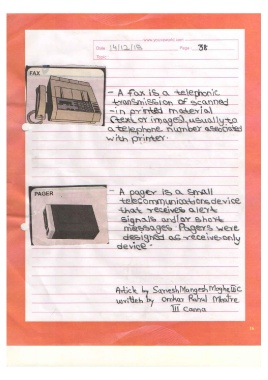 Date 14/12/18 Page 38
FAX
- A fax is a telephonic
transmission of scanned
-in printed material
(text or images), usually to
a telephone number associated
with printer.
PAGER
- A pager is a small
telecommunications device
that receives alert
signals and/or short
messages. Pagers were
designed as receive-only
device.
Article by Sarvesh Mangesh
written by Onkar Rahul Mhatre
III Canna